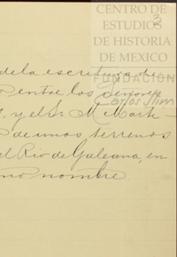 CENTRO DE
ESTUDIOS
DE HISTORIA
DE MEXICO
FUNDACIÓN
Carlos Slim
de la escritura de
entre los Señores
y el Sr. M. Mark-
de unos terrenos
el Rio de Galeana, en
mo nombre